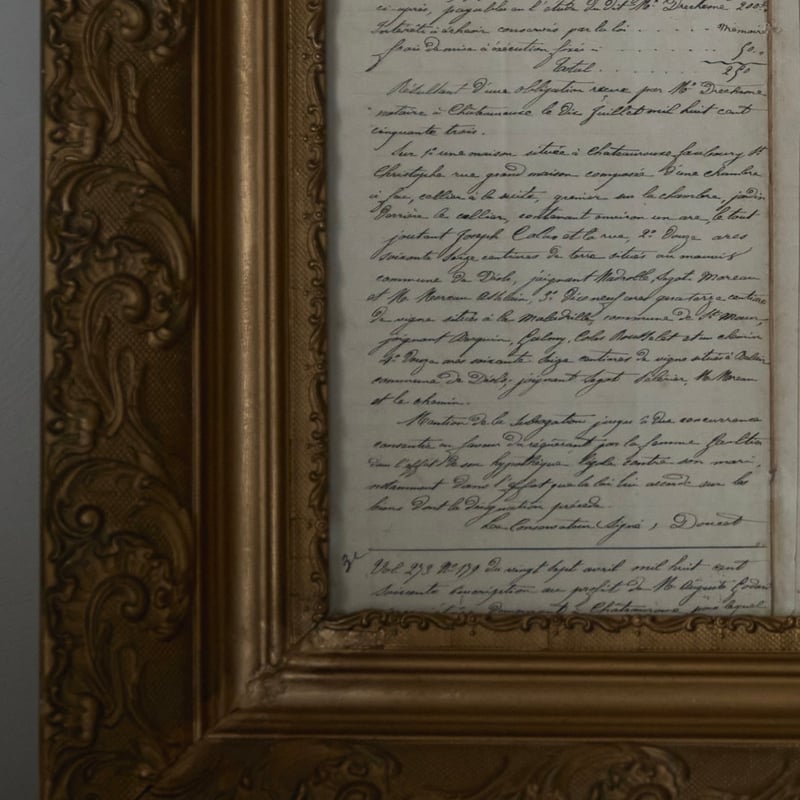 ci-après, payables en l'étude du dit Me Drechesne 200..
Intérêts à échoir conservés par la loi . . . . . Mémoire
frais de mise à exécution fixés . . . . . 50..
Total . . . . . 250
Résultant d'une obligation reçue par Me Drechesne
notaire à Châteauroux le dix Juillet mil huit cent
cinquante trois.
Sur 1° une maison située à Châteauroux faubourg St
Christophe rue grand maison composée d'une chambre
à feu, cellier à la suite, grenier sur la chambre, jardin
derrière le cellier, contenant environ un are, le tout
joutant Joseph Colas et la rue, 2° Douze ares
soixante seize centiares de terre situés au mauvis
commune de Déols, joignant Nadrolle, Sagot Moreau
et Me Moreau 3° Dix neuf ares quatorze centiares
de vigne situés à la Maledrille, commune de St Maur,
joignant Colas Rousselet et un chemin
4° Douze ares soixante seize centiares de vigne situés à
commune de Déols, joignant Sagot Me Moreau
et le chemin.
Mention de la subrogation jusqu'à due concurrence
consentie en faveur du requérant par la femme Gaultier
dans l'effet de son hypothèque légale contre son mari,
notamment dans l'effet que la loi lui accorde sur les
biens dont la désignation précède.
Le Conservateur Signé, Doucet
3e
Vol. 273 No 179 du vingt sept avril mil huit cent
soixante inscription au profit de Mr Auguste Godard
demeurant à Châteauroux pour lequel